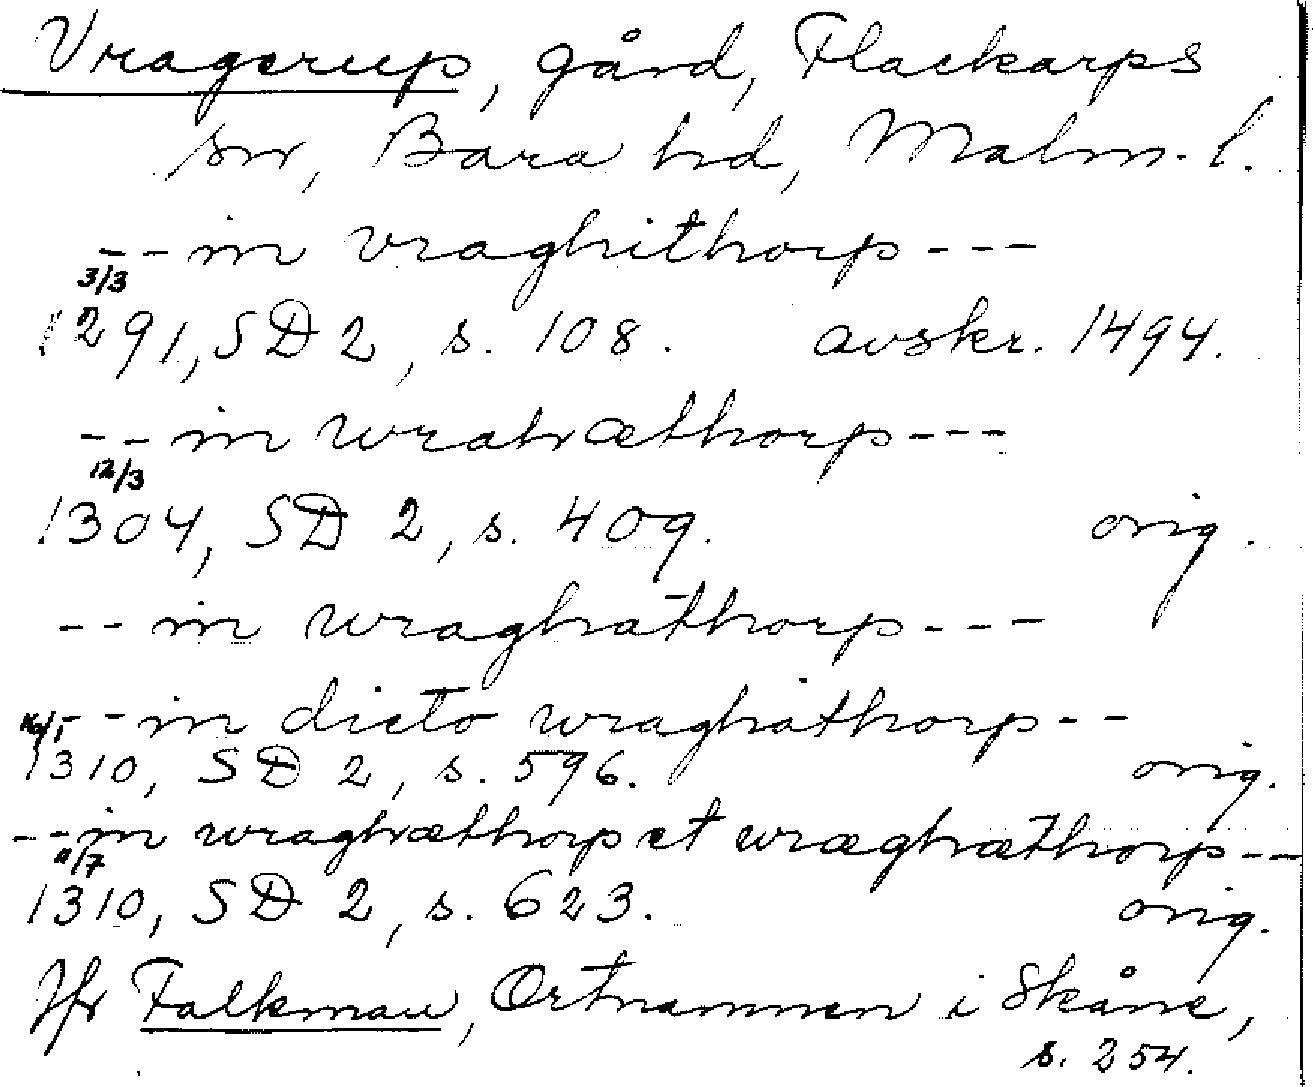 Vragerup, gård, Flackarps
sn, Bara hd, Malm. l.
-- in vraghithorp ---
3/3
1291, SD 2, s. 108. avskr. 1494.
-- in wrahæthorp ---
12/3
1304, SD 2, s. 409. orig.
-- in wraghathorp ---
-- in dicto wraghathorp --
16/1
1310, SD 2, s. 596. orig.
-- in wraghæthorp et wræghæthorp --
11/7
1310, SD 2, s. 623. orig.
Jfr Falkman, Ortnamnen i Skåne,
s. 254.